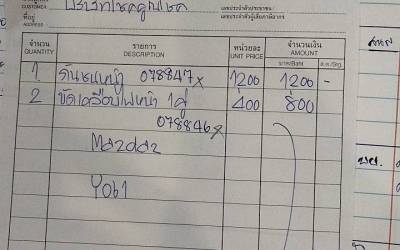 CUSTOMER
ที่อยู่
ADDRESS
เลขประจำตัวประชาชน
เลขประจำตัวผู้เสียภาษีอากร
จำนวน รายการ หน่วยละ จำนวนเงิน
QUANTITY DESCRIPTION UNIT PRICE AMOUNT
บาท/Baht ส.ต./Stg.
1 กันชนหน้า 078847x 1200 1200 -
2 ขัดเคลือบไฟหน้า 1คู่ 400 800
078846x
Mazda2